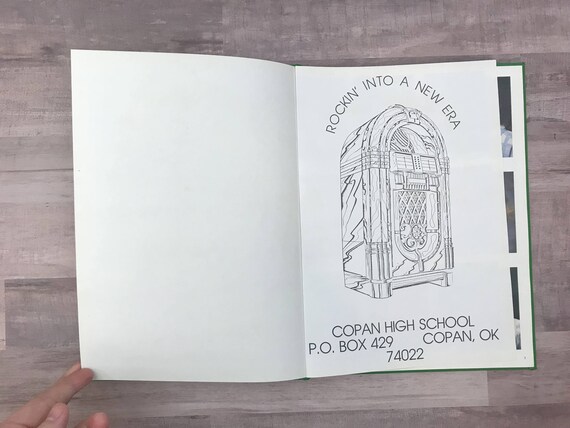 ROCKIN' INTO A NEW ERA
COPAN HIGH SCHOOL
P.O. BOX 429 COPAN, OK
74022